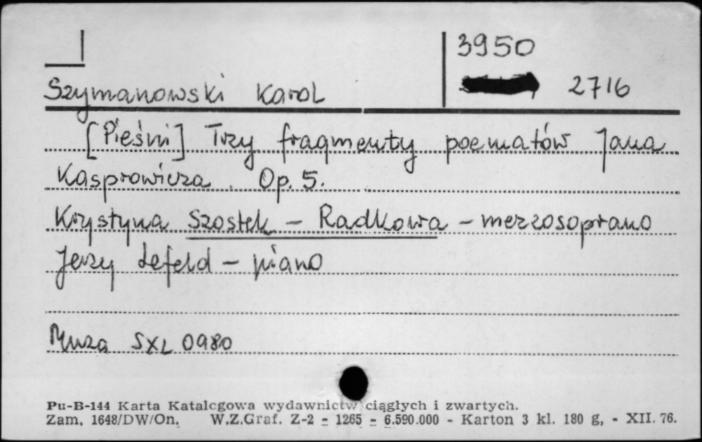 3950
2716
Szymanowski Karol
[Pieśni] Trzy fragmenty poematów Jana
Kasprowicza. Op. 5.
Krystyna Szostek - Radkowa - mezzosoprano
Jerzy Lefeld - piano
Muza SXL 0980
Pu-B-144 Karta Katalogowa wydawnictw ciągłych i zwartych.
Zam. 1648/DW/On. W.Z.Graf. Z-2 - 1265 - 6.590.000 - Karton 3 kl. 180 g, - XII. 76.